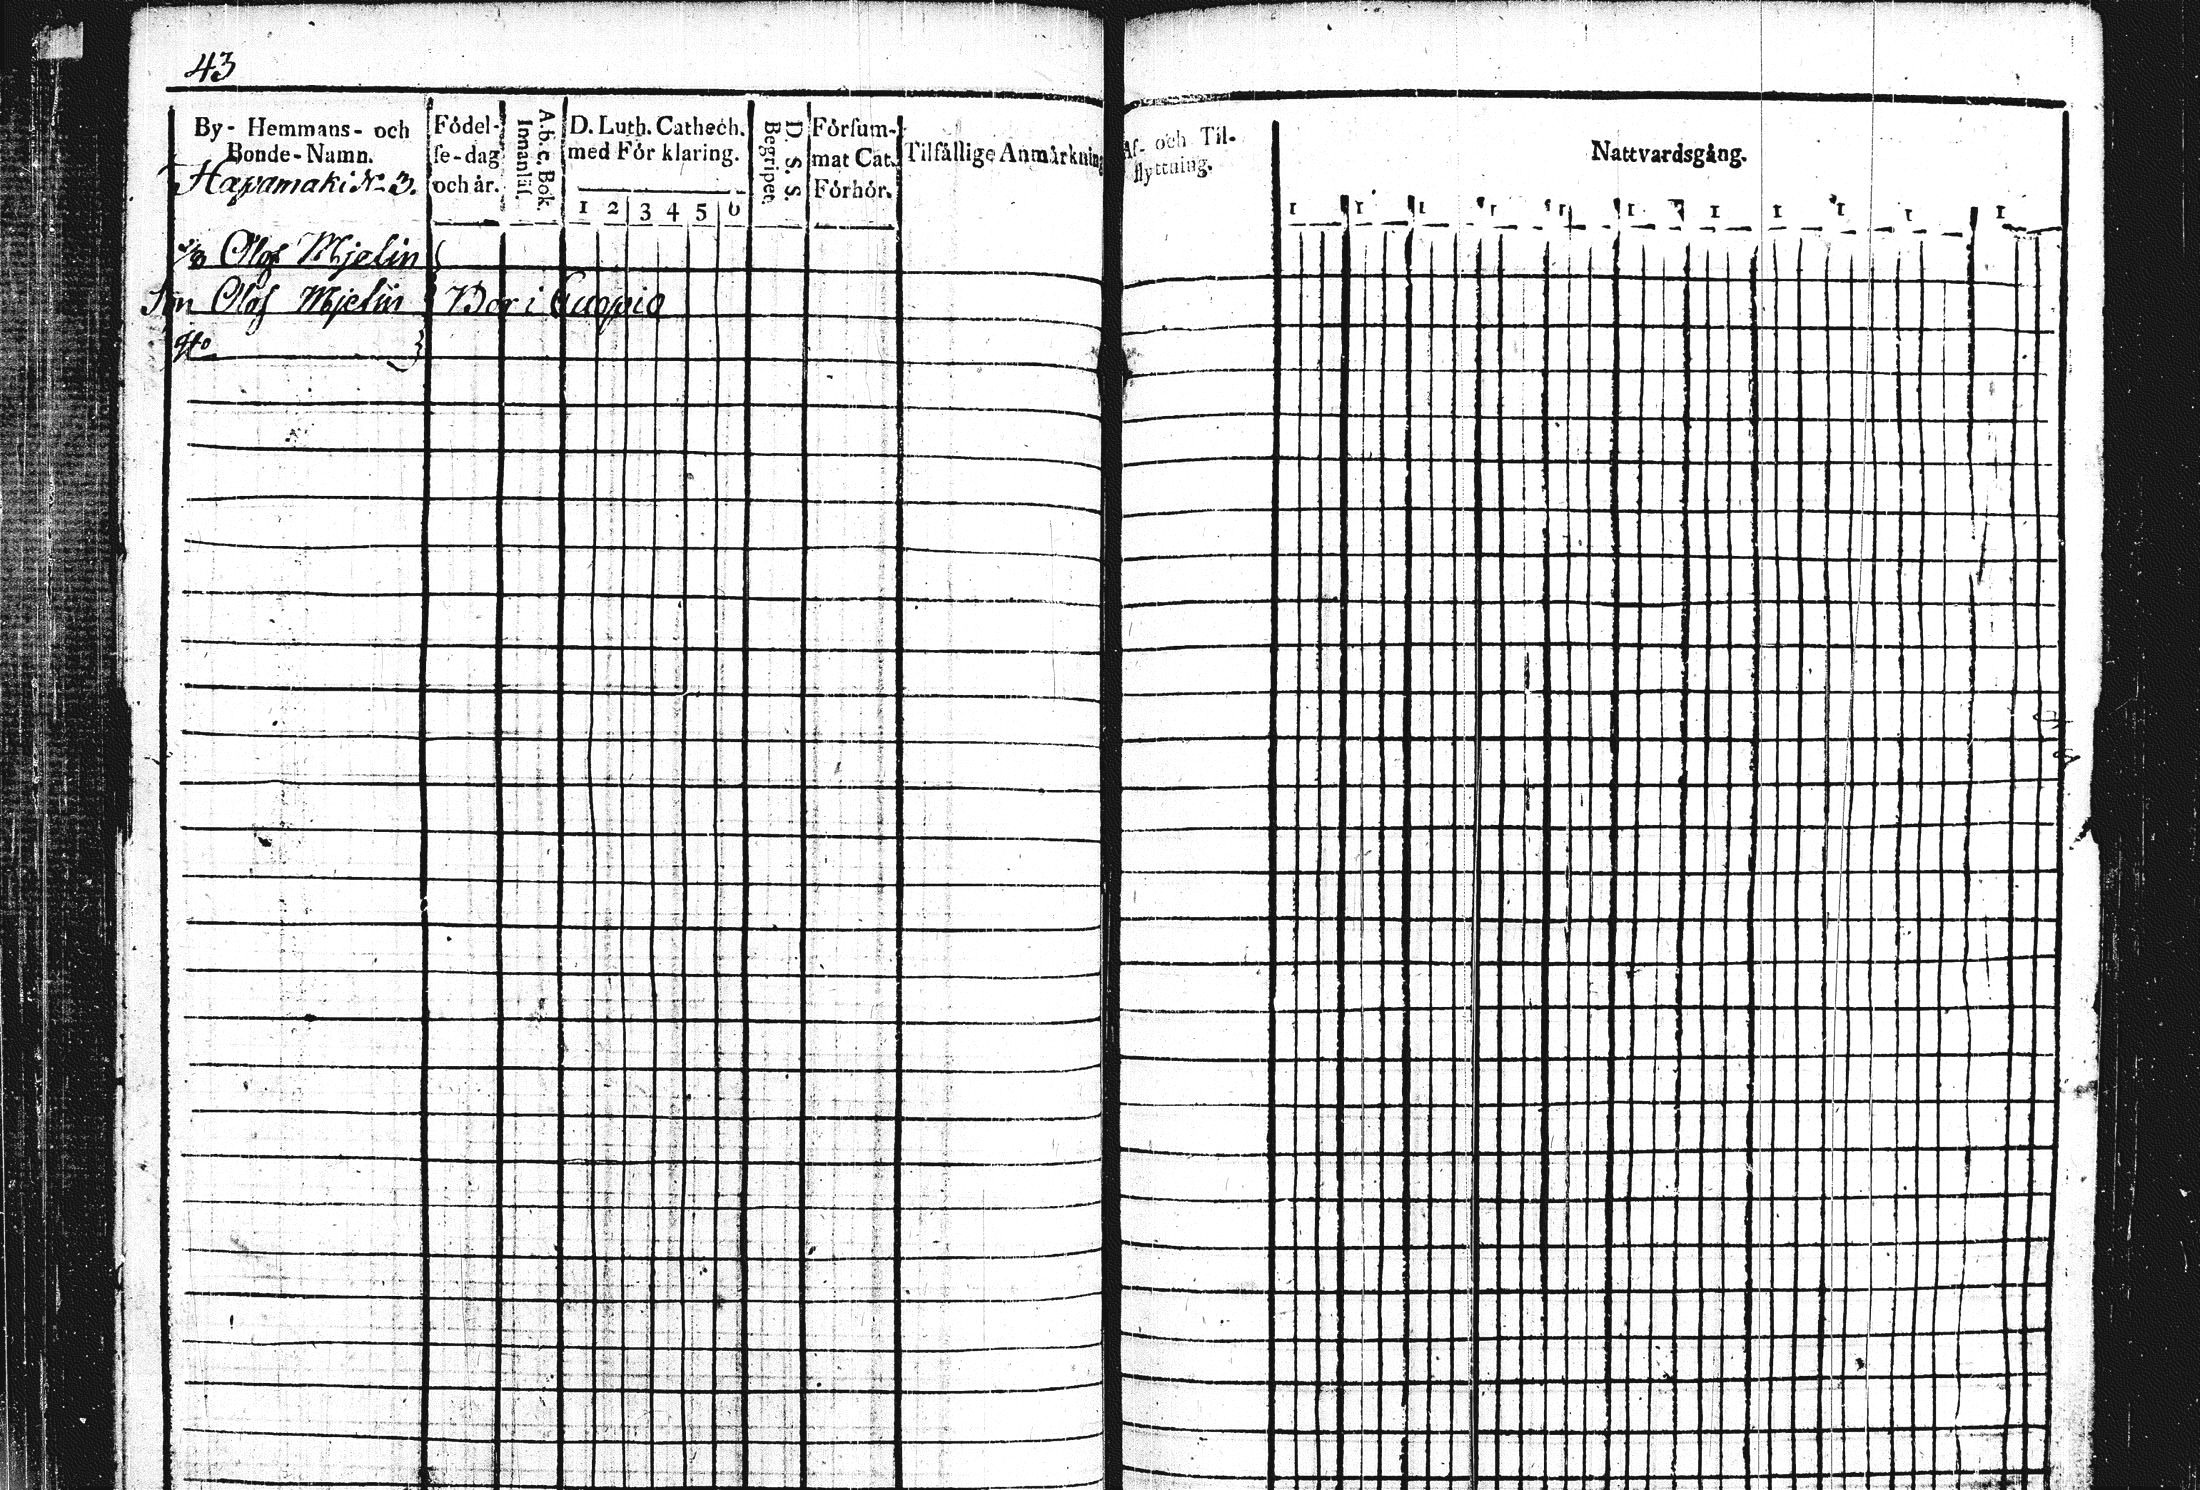 43
By- Hemmans- och
Bonde-Namn.
Hapamaki N. 3.
Födel-
se-dag
och år.
A.b.c. Bok.
Innanläs.
D. Luth. Cathech.
med För klaring.
1 2 3 4 5 6
D. S. S.
Begripet.
Försum-
mat Cat.
Förhör.
Tilfällige Anmärkning
Af- och Til-
flyttning.
Nattvardsgång.
1 1 1 1 1 1 1 1 1 1 1
Olof Mjelin
Son Olof Mjelin Bor i Cuopio